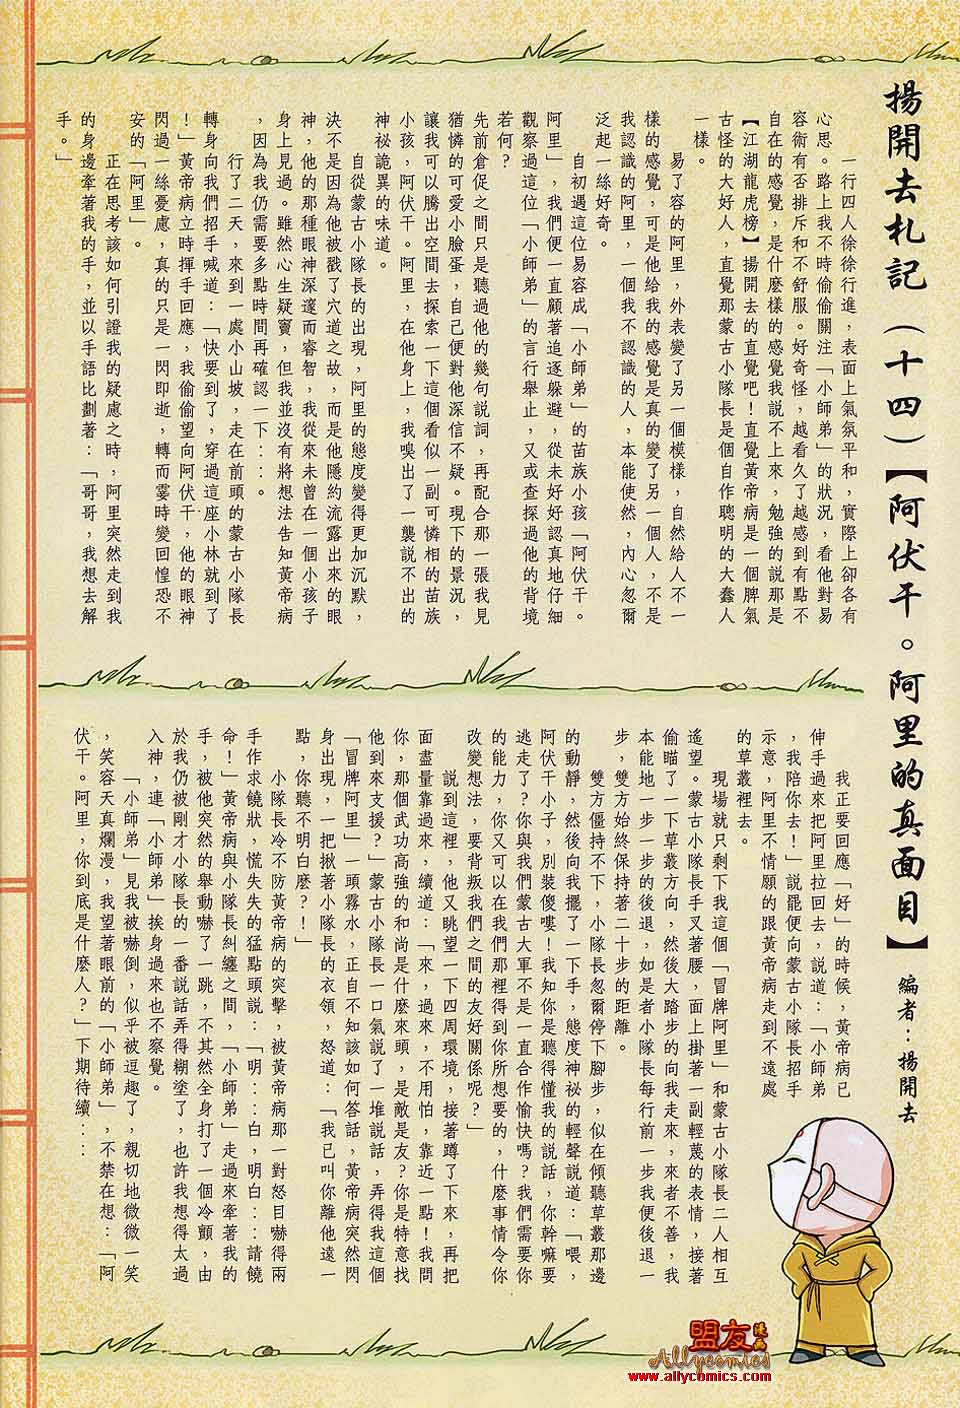 揚開去札記（十四）【阿伏干。阿里的真面目】 編者：揚開去
一行四人徐徐行進，表面上氣氛平和，實際上卻各有
心思。路上我不時偷偷關注「小師弟」的狀況，看他對易
容術有否排斥和不舒服。好奇怪，越看久了越感到有點不
自在的感覺，是什麼樣的感覺我說不上來，勉強的說那是
【江湖龍虎榜】揚開去的直覺吧！直覺黃帝病是一個脾氣
古怪的大好人，直覺那蒙古小隊長是個自作聰明的大蠢人
一樣。
易了容的阿里，外表變了另一個模樣，自然給人不一
樣的感覺，可是他給我的感覺是真的變了另一個人，不是
我認識的阿里，一個我不認識的人，本能使然，內心忽爾
泛起一絲好奇。
自初遇這位易容成「小師弟」的苗族小孩「阿伏干。
阿里」，我們便一直顧著追逐躲避，從未好好認真地仔細
觀察過這位「小師弟」的言行舉止，又或查探過他的背境
若何？
先前倉促之間只是聽過他的幾句說詞，再配合那一張我見
猶憐的可愛小臉蛋，自己便對他深信不疑。現下的景況，
讓我可以騰出空間去探索一下這個看似一副可憐相的苗族
小孩，阿伏干。阿里，在他身上，我嗅出了一襲說不出的
神祕詭異的味道。
自從蒙古小隊長的出現，阿里的態度變得更加沉默，
決不是因為他被戳了穴道之故，而是他隱約流露出來的眼
神，他的那種眼神深邃而睿智，我從來未曾在一個小孩子
身上見過。雖然心生疑竇，但我並沒有將想法告知黃帝病
，因為我仍需要多點時間再確認一下…。
行了二天，來到一處小山坡，走在前頭的蒙古小隊長
轉身向我們招手喊道：「快要到了，穿過這座小林就到了
！」黃帝病立時揮手回應，我偷偷望向阿伏干，他的眼神
閃過一絲憂慮，真的只是一閃即逝，轉而霎時變回惶恐不
安的「阿里」。
正在思考該如何引證我的疑慮之時，阿里突然走到我
的身邊牽著我的手，並以手語比劃著：「哥哥，我想去解
手。」
我正要回應「好」的時候，黃帝病已
伸手過來把阿里拉回去，說道：「小師弟
，我陪你去！」說罷便向蒙古小隊長招手
示意，阿里不情願的跟黃帝病走到不遠處
的草叢裡去。
現場就只剩下我這個「冒牌阿里」和蒙古小隊長二人相互
遙望。蒙古小隊長手叉著腰，面上掛著一副輕蔑的表情，接著
偷瞄了一下草叢方向，然後大踏步的向我走來，來者不善，我
本能地一步一步的後退，如是者小隊長每行前一步我便後退一
步，雙方始終保持著二十步的距離。
雙方僵持不下，小隊長忽爾停下腳步，似在傾聽草叢那邊
的動靜，然後向我擺了一下手，態度神祕的輕聲說道：「喂，
阿伏干小子，別裝傻嘍！我知你是聽得懂我的說話，你幹嘛要
逃走了？你與我們蒙古大軍不是一直合作愉快嗎？我們需要你
的能力，你又可以在我們那裡得到你所想要的，什麼事情令你
改變想法，要背叛我們之間的友好關係呢？」
說到這裡，他又眺望一下四周環境，接著蹲了下來，再把
面盡量靠過來，續道：「來，過來，不用怕，靠近一點！我問
你，那個武功高強的和尚是什麼來頭，是敵是友？你是特意找
他到來支援？」蒙古小隊長一口氣說了一堆說話，弄得我這個
「冒牌阿里」一頭霧水，正自不知該如何答話，黃帝病突然閃
身出現，一把揪著小隊長的衣領，怒道：「我已叫你離他遠一
點，你聽不明白麼？！」
小隊長冷不防黃帝病的突擊，被黃帝病那一對怒目嚇得兩
手作求饒狀，慌失失的猛點頭說：「明…白，明白…請饒
命！」黃帝病與小隊長糾纏之間，「小師弟」走過來牽著我的
手，被他突然的舉動嚇了一跳，不其然全身打了一個冷顫，由
於我仍被剛才小隊長的一番說話弄得糊塗了，也許我想得太過
入神，連「小師弟」挨身過來也不察覺。
「小師弟」見我被嚇倒，似乎被逗趣了，親切地微微一笑
，笑容天真爛漫，我望著眼前的「小師弟」，不禁在想：「阿
伏干。阿里，你到底是什麼人？」下期待續…
盟友漫畫
Allycomics
www.allycomics.com